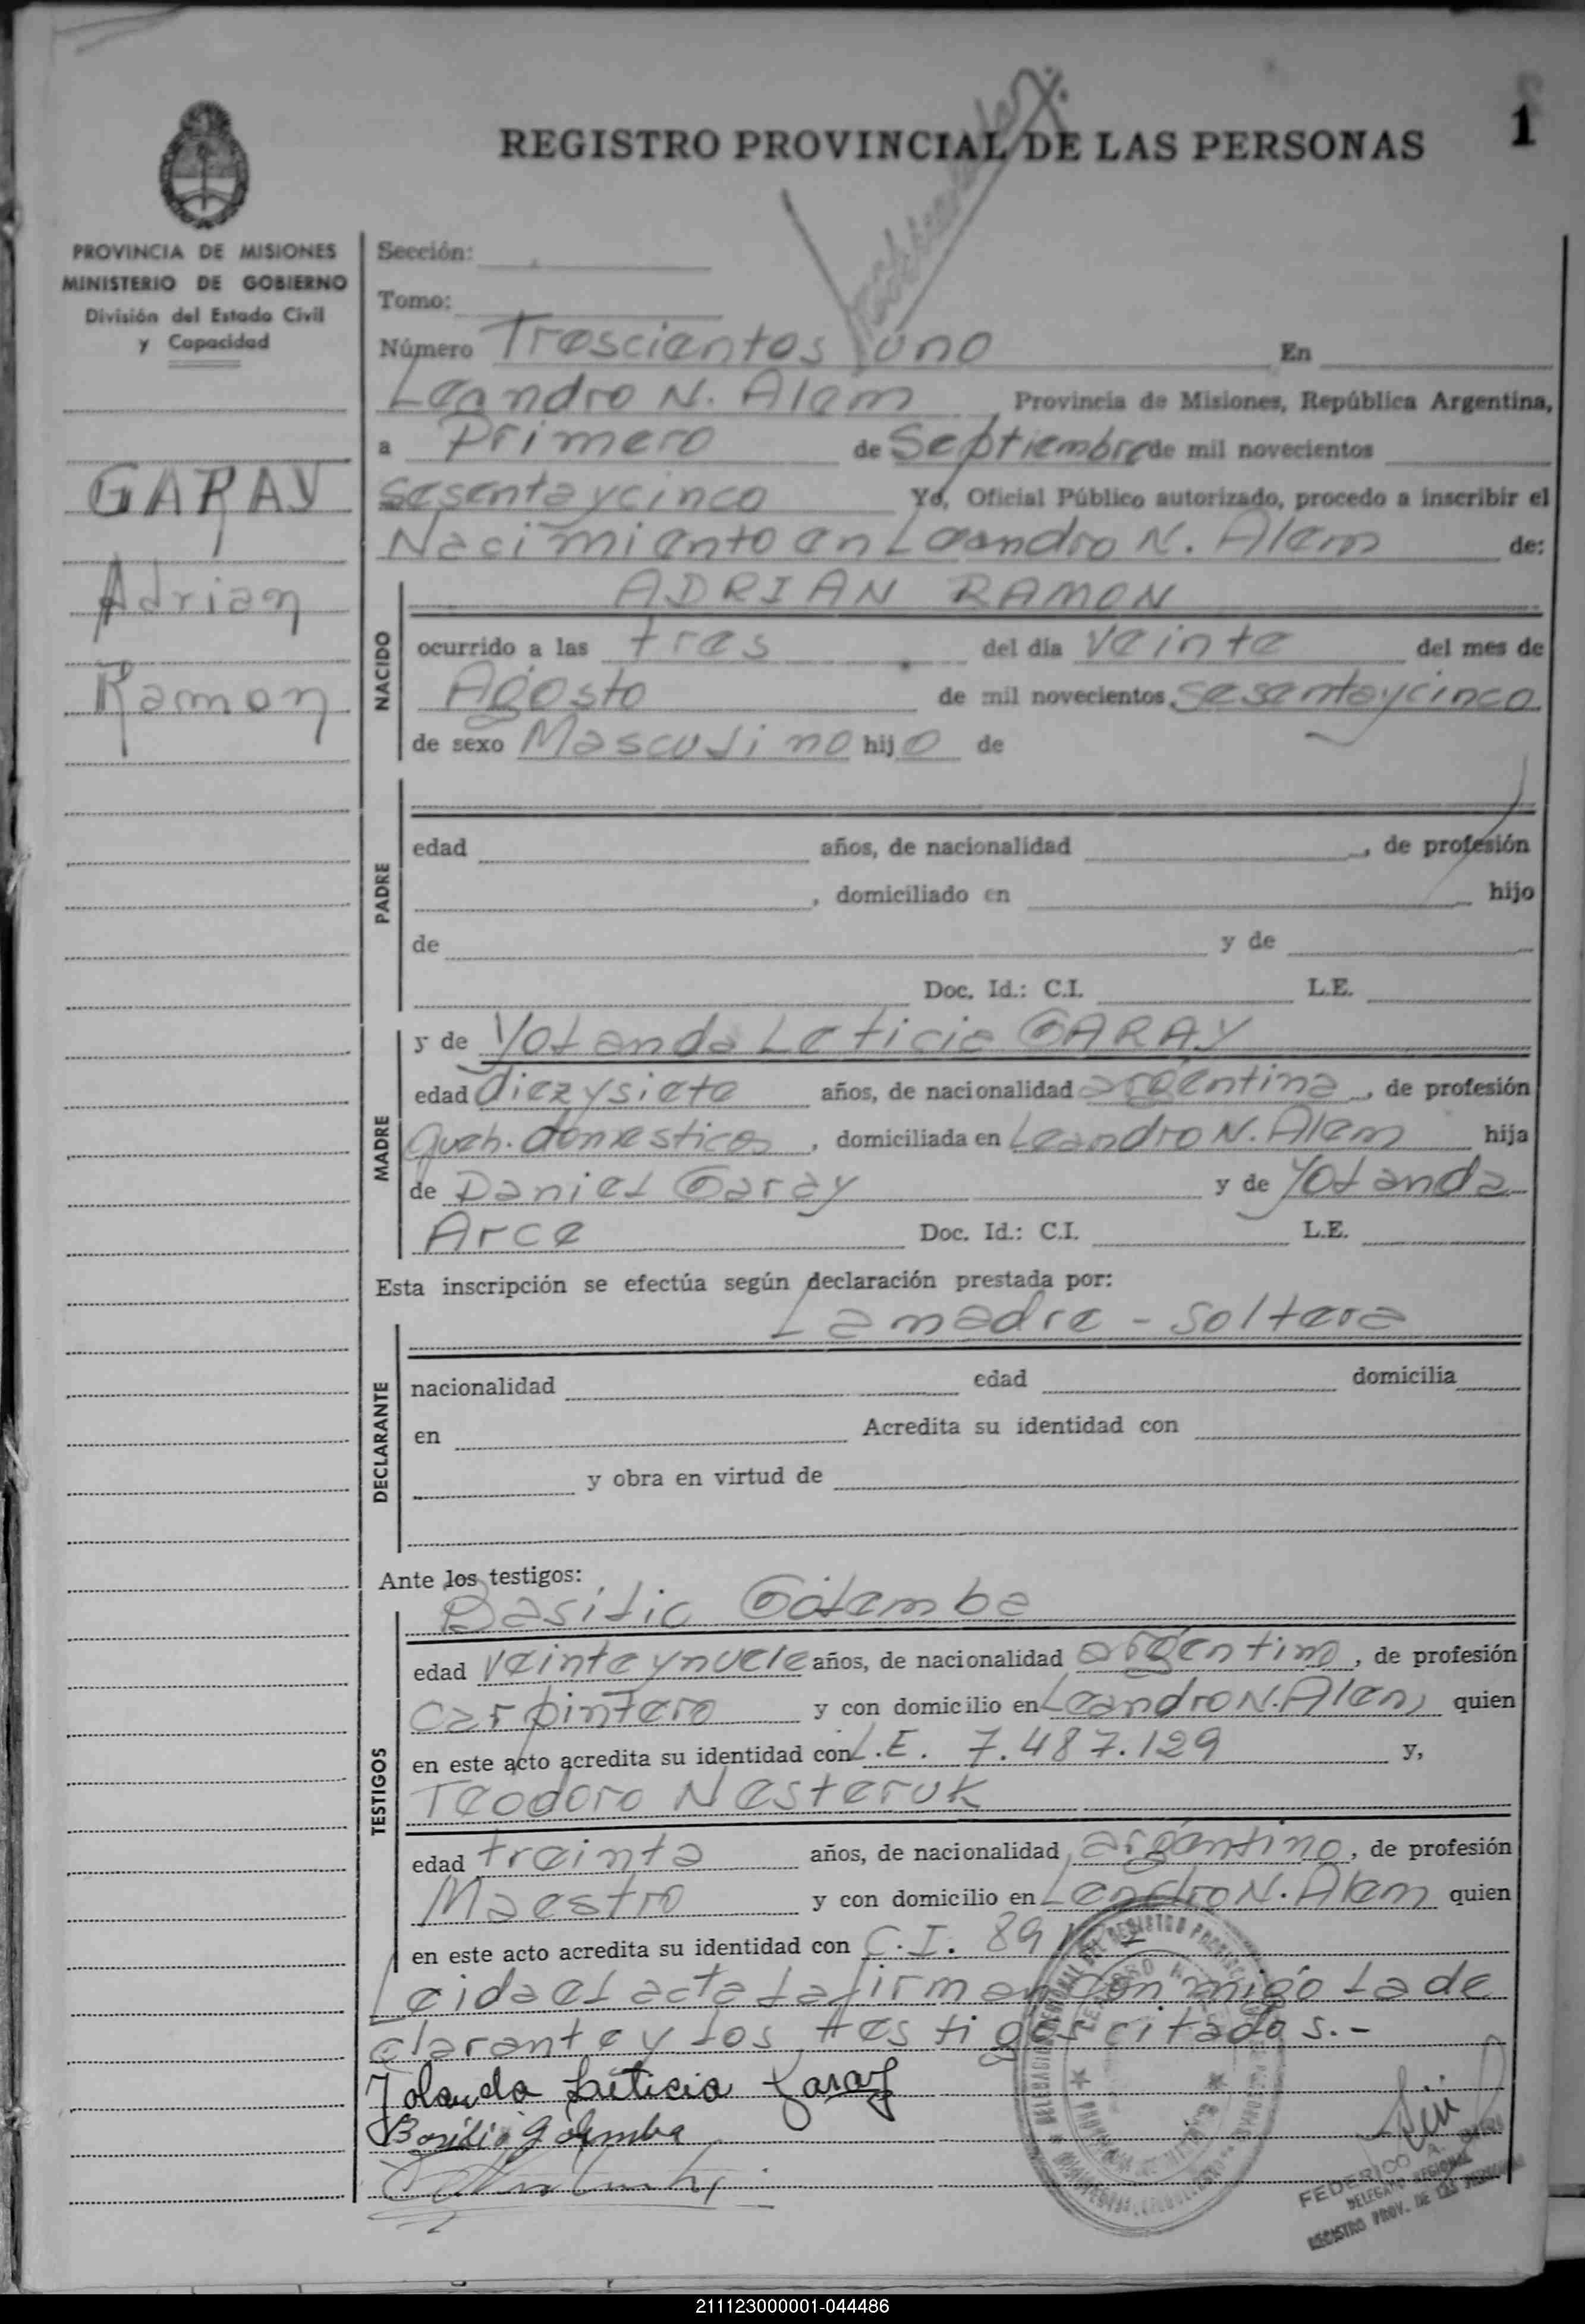 REGISTRO PROVINCIAL DE LAS PERSONAS 1
PROVINCIA DE MISIONES
MINISTERIO DE GOBIERNO
División del Estado Civil
y Capacidad
GARAY
Adrian
Ramon
Sección:
Tomo:
Número Trescientos uno En
Leandro N. Alem Provincia de Misiones, República Argentina,
a Primero de Septiembre de mil novecientos
sesentaycinco Yo, Oficial Público autorizado, procedo a inscribir el
Nacimiento en Leandro N. Alem de:
NACIDO
ADRIAN RAMON
ocurrido a las tres del día veinte del mes de
Agosto de mil novecientos sesentaycinco
de sexo Masculino hijo de
PADRE
edad años, de nacionalidad , de profesión
, domiciliado en hijo
de y de
Doc. Id.: C.I. L.E.
MADRE
y de Yolanda Leticia GARAY
edad diezysiete años, de nacionalidad argentina, de profesión
queh. domesticos, domiciliada en Leandro N. Alem hija
de Daniel Garay y de Yolanda
Arce Doc. Id.: C.I. L.E.
Esta inscripción se efectúa según declaración prestada por:
La madre - soltera
DECLARANTE
nacionalidad edad domicilia
en Acredita su identidad con
y obra en virtud de
Ante los testigos:
TESTIGOS
Basilio Golemba
edad veinteynueve años, de nacionalidad argentino, de profesión
carpintero y con domicilio en Leandro N. Alem quien
en este acto acredita su identidad con L.E. 7.487.129 y,
Teodoro Nesteruk
edad treinta años, de nacionalidad argentino, de profesión
Maestro y con domicilio en Leandro N. Alem quien
en este acto acredita su identidad con C.I. 89
Leida el acta la firman conmigo la de
clarante y los testigos citados.-
Yolanda Leticia Garay
Basilio Golemba
FEDERICO A.
DELEGADO REGIONAL
REGISTRO PROV. DE LAS PERSONAS
211123000001-044486